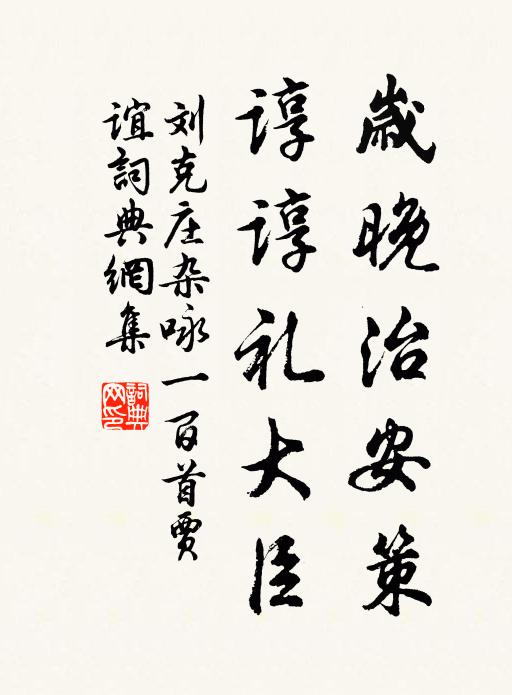 歲晚治安策
諄諄礼大臣
刘克庄杂咏一百首賈
誼詞典網集
詞典網印